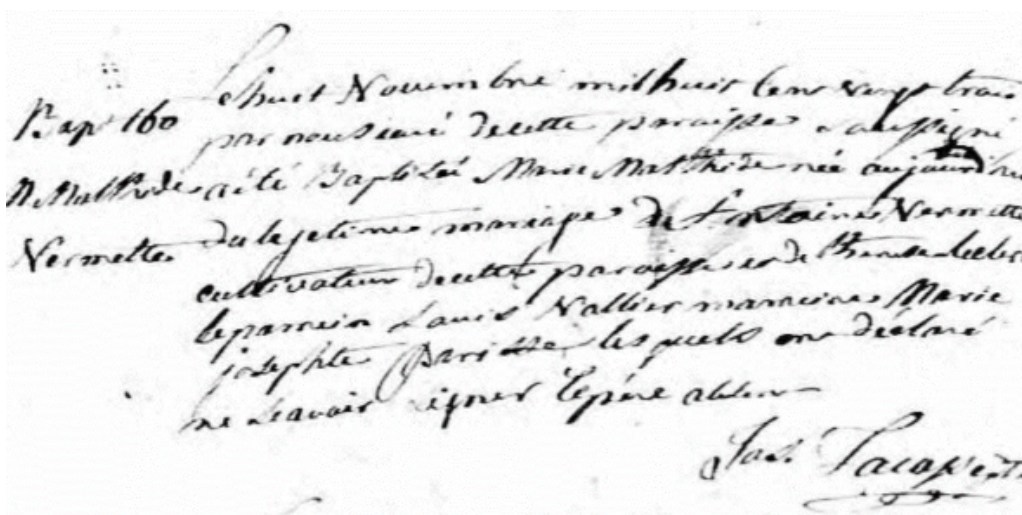 Bapt 160
M. Mathilde
Vermette
Le huit Novembre mil huit cent vingt trois
par nous curé de cette paroisse soussigné
a été Baptisée Marie Mathilde née aujourd'hui
du legetime mariage de Fontaine Vermette
cultivateur de cette paroisse et de Therese Leclerc
le parrein Louis Vallier marraine Marie
josephte Parisse lesquels ont déclaré
ne scavoir signer le père absent
Jos.